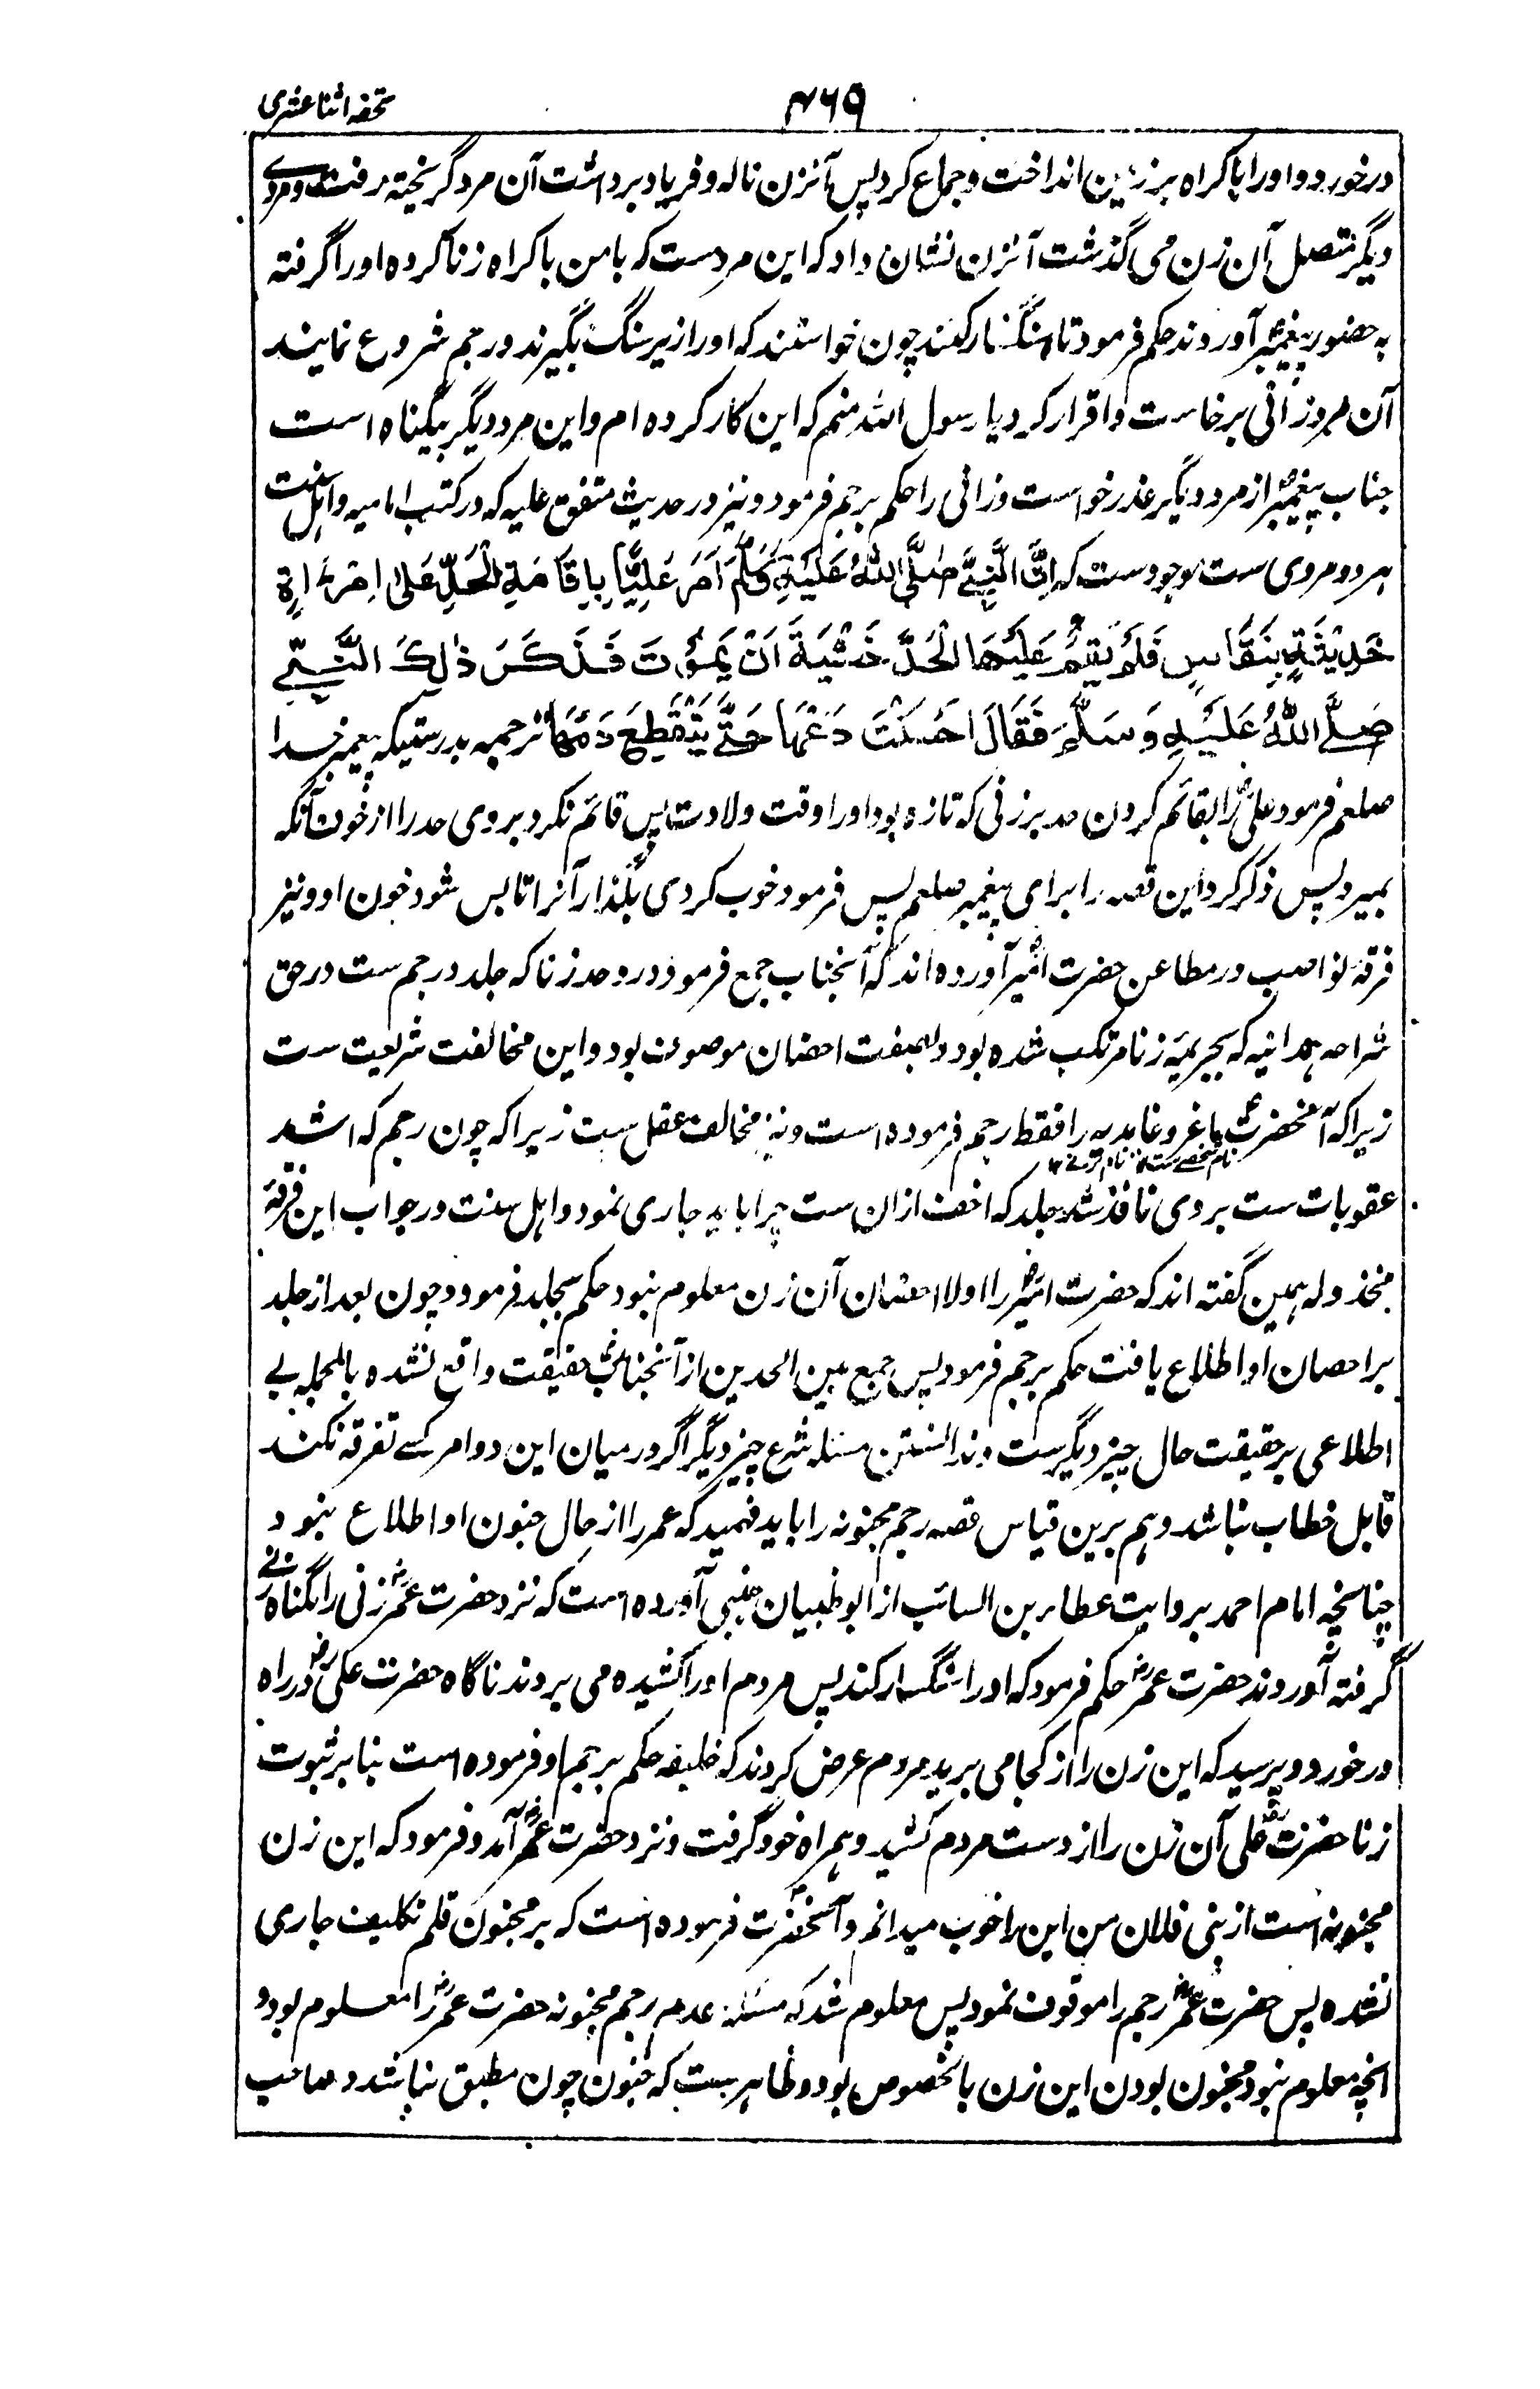 تحفه اثنا عشری
۴۶۹
درخورد و او را باکراه بر زمین انداخت و جماع کرد پس آنزن ناله و فریاد برداشت آن مرد گریخته رفت و مردے
دیگر متصل آن زن می گذشت آنزن نشان داد که این مردست که بامن باکراه زنا کرده او را گرفته
به حضور پیغمبر آوردند حکم فرمود تا سنگسار کنند چون خواستند که او را زیر سنگ بگیرند و رجم شروع نمایند
آن مرد زانی برخاست و اقرار کرد یا رسول الله منم که این کار کرده ام و این مرد دیگر بیگناه است
جناب پیغمبر از مرد دیگر عذر خواست و زانی را حکم برجم فرمود و نیز در حدیث متفق علیه که در کتب امامیه و اهل سنت
هر دو مروی ست موجودست که اِنَّ النَّبِیَّ صَلَّی اللّٰهُ عَلَیْهِ وَسَلَّمَ اَمَرَ عَلِیًّا بِاِقَامَةِ الْحَدِّ عَلیٰ اِمْرَاَةٍ
حَدِیْثَةٍ بِنَفَاسٍ فَلَمْ یُقِمْ عَلَیْهَا الْحَدَّ خَشْیَةَ اَنْ یَمُوْتَ فَذَکَرَ ذٰلِکَ النَّبِیِّ
صَلَّی اللّٰهُ عَلَیْهِ وَسَلَّمَ فَقَالَ اَحْسَنْتَ دَعْهَا حَتّٰی یَنْقَطِعَ دَمُهَا ترجمه بدرستیکه پیغمبر خدا
صلعم فرمود علی را بقائم کردن حد بر زنی که تازه بود او را وقت ولادت پس قائم نکرد بر وی حد را از خوف آنکه
بمیرد پس ذکر کرد این قصه را برای پیغمبر صلعم پس فرمود خوب کردی بگذار آنرا تا بس شود خون او و نیز
فرقه نواصب در مطاعن حضرت امیر آورده اند که آنجناب جمع فرمود در دو حد زنا که جلد و رجم ست در حق
شراحه همدانیه که بجریمه زنا مرتکب شده بود و بصفت احصان موصوف بود و این مخالفت شریعت ست
زیرا که آنحضرت ماعز و غامدیه را فقط رجم فرموده است و نیز مخالف عقل ست زیرا که چون رجم که اشد
نام شخصے ست نام قومے
عقوبات ست بر وی نافذ شد جلد که اخف ازان ست چرا باید جاری نمود و اهل سنت در جواب این فرقه
مخذوله همین گفته اند که حضرت امیر را اولا احصان آن زن معلوم نبود حکم بجلد فرمود و چون بعد از جلد
بر احصان او اطلاع یافت حکم برجم فرمود پس جمع بین الحدین از آنجناب حقیقت واقع نشده بالجمله بے
اطلاعی بر حقیقت حال چیز دیگرست و ندانستن مسئله شرع چیز دیگر اگر در میان این دو امر کسے تفرقه نکند
قابل خطاب نباشد و هم برین قیاس قصه رجم مجنونه را باید فهمید که عمر را از حال جنون او اطلاع نبود
چنانچه امام احمد بروایت عطار بن السائب از ابو ظبیان جنبی آورده است که نزد حضرت عمر زنی را بگناه زنا
گرفته آوردند حضرت عمر حکم فرمود که او را سنگسار کنند پس مردم او را کشیده می بردند ناگاه حضرت علی در راه
درخورد و پرسید که این زن را از کجا می برید مردم عرض کردند که خلیفه حکم برجم او فرموده است بنابر ثبوت
زنا حضرت علی آن زن را از دست مردم کشید و همراه خود گرفت و نزد حضرت عمر آمد و فرمود که این زن
مجنونه است از بنی فلان من این را خوب میدانم و آنحضرت فرموده است که بر مجنون قلم تکلیف جاری
نشده پس حضرت عمر رجم را موقوف نمود پس معلوم شد که مسئله عدم رجم مجنونه حضرت عمر را معلوم بود و
انچه معلوم نبود مجنون بودن این زن بالخصوص بود و ظاهرست که جنون چون مطبق نباشد و صاحب